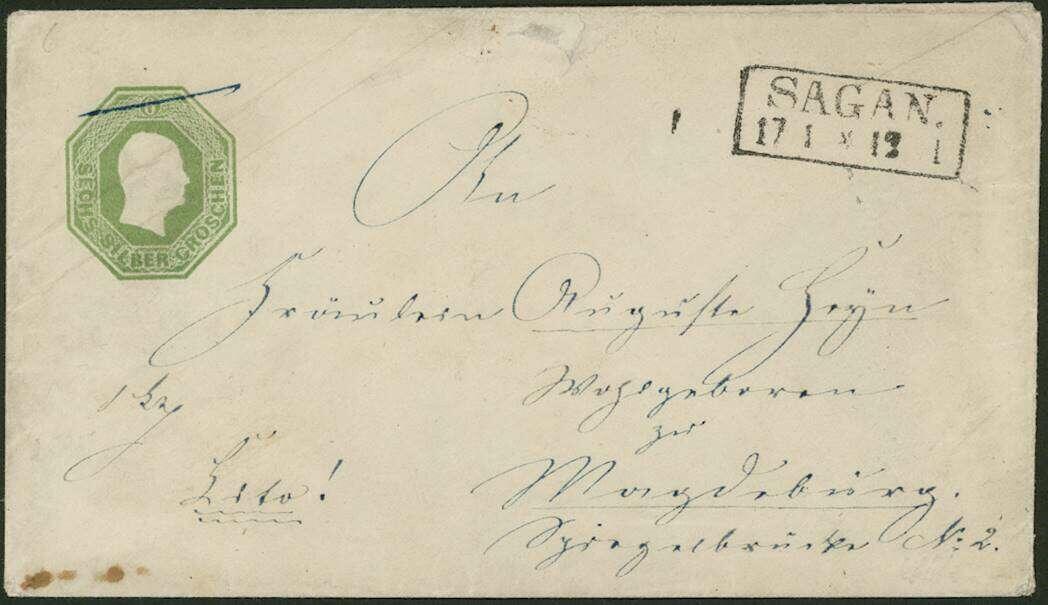 6
SECHS SILBER GROSCHEN
SAGAN.
17 1 * 12 1
An
Fräulein Auguste Heyn
Wohlgeboren
zu
Magdeburg.
Spiegelbrücke No: 2.
Cito!